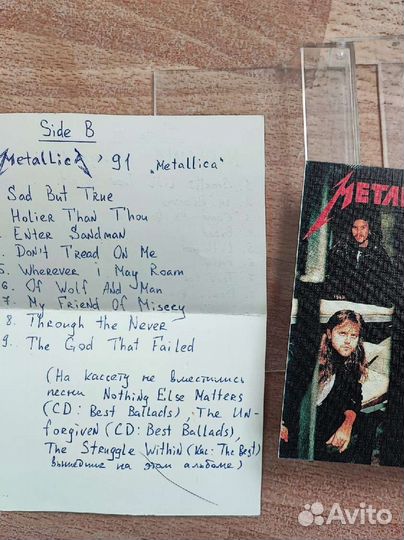 Side B
Metallica '91 "Metallica"
Sad But True
Holier Than Thou
Enter Sandman
Don't Tread On Me
5. Wherever i May Roam
6. Of Wolf And Man
7. My Friend Of Misery
8. Through the Never
9. The God That Failed
(На кассету не вместились
песни Nothing Else Matters
(CD: Best Ballads), The Un-
forgiven (CD: Best Ballads),
The Struggle Within (Кас: The Best)
вышедшие на этом альбоме)
METAL
Avito